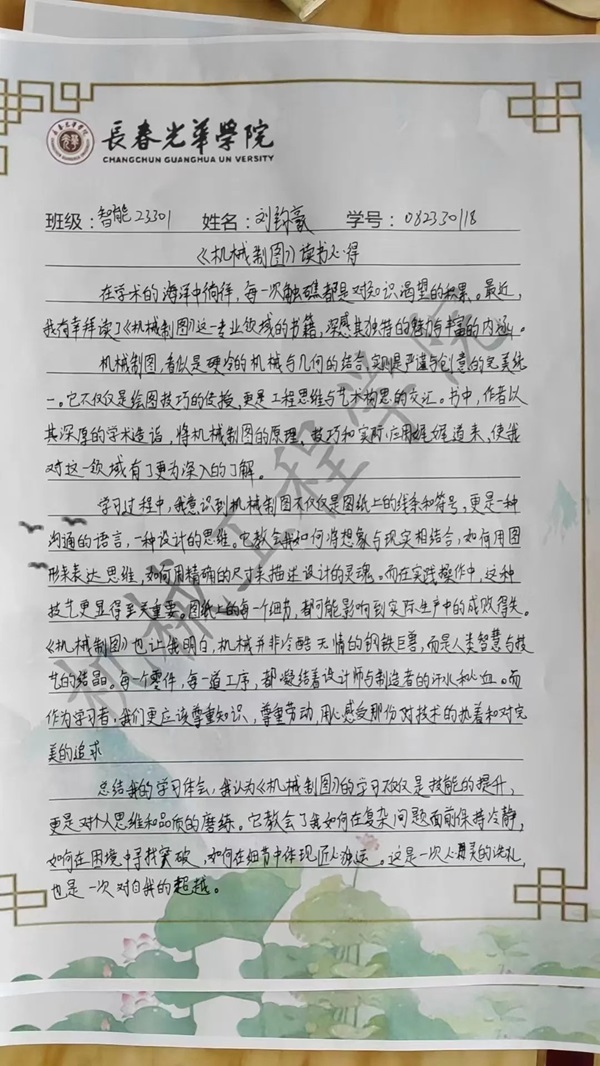 長春光華學院
CHANGCHUN GUANGHUA UN VERSITY
班级：智能23301 姓名：刘钧豪 学号：082330118
《机械制图》读书心得
在学术的海洋中徜徉，每一次触礁都是对知识渴望的积累。最近，
我有幸拜读了《机械制图》这一专业领域的书籍，深感其独特的魅力与丰富的内涵。
机械制图，看似是硬冷的机械与几何的结合，实则是严谨与创意的完美统
一。它不仅仅是绘图技巧的传授，更是工程思维与艺术构思的交汇。书中，作者以
其深厚的学术造诣，将机械制图的原理、技巧和实际应用娓娓道来，使我
对这一领域有了更为深入的了解。
学习过程中，我意识到机械制图不仅仅是图纸上的线条和符号，更是一种
沟通的语言，一种设计的思维。它教会我如何将想象与现实相结合，如何用图
形来表达思维，如何用精确的尺寸来描述设计的灵魂。而在实践操作中，这种
技艺更显得至关重要。图纸上的每一个细节，都可能影响到实际生产中的成败得失。
《机械制图》也让我明白，机械并非冷酷无情的钢铁巨兽，而是人类智慧与技
艺的结晶。每一个零件，每一道工序，都凝结着设计师与制造者的汗水和心血。而
作为学习者，我们更应该尊重知识，尊重劳动，用心感受那份对技术的执着和对完
美的追求
总结我的学习体会，我认为《机械制图》的学习不仅仅是技能的提升，
更是对个人思维和品质的磨练。它教会了我如何在复杂问题面前保持冷静，
如何在困境中寻找突破，如何在细节中体现匠心独运。这是一次心灵的洗礼，
也是一次对自我的超越。
机械工程学院